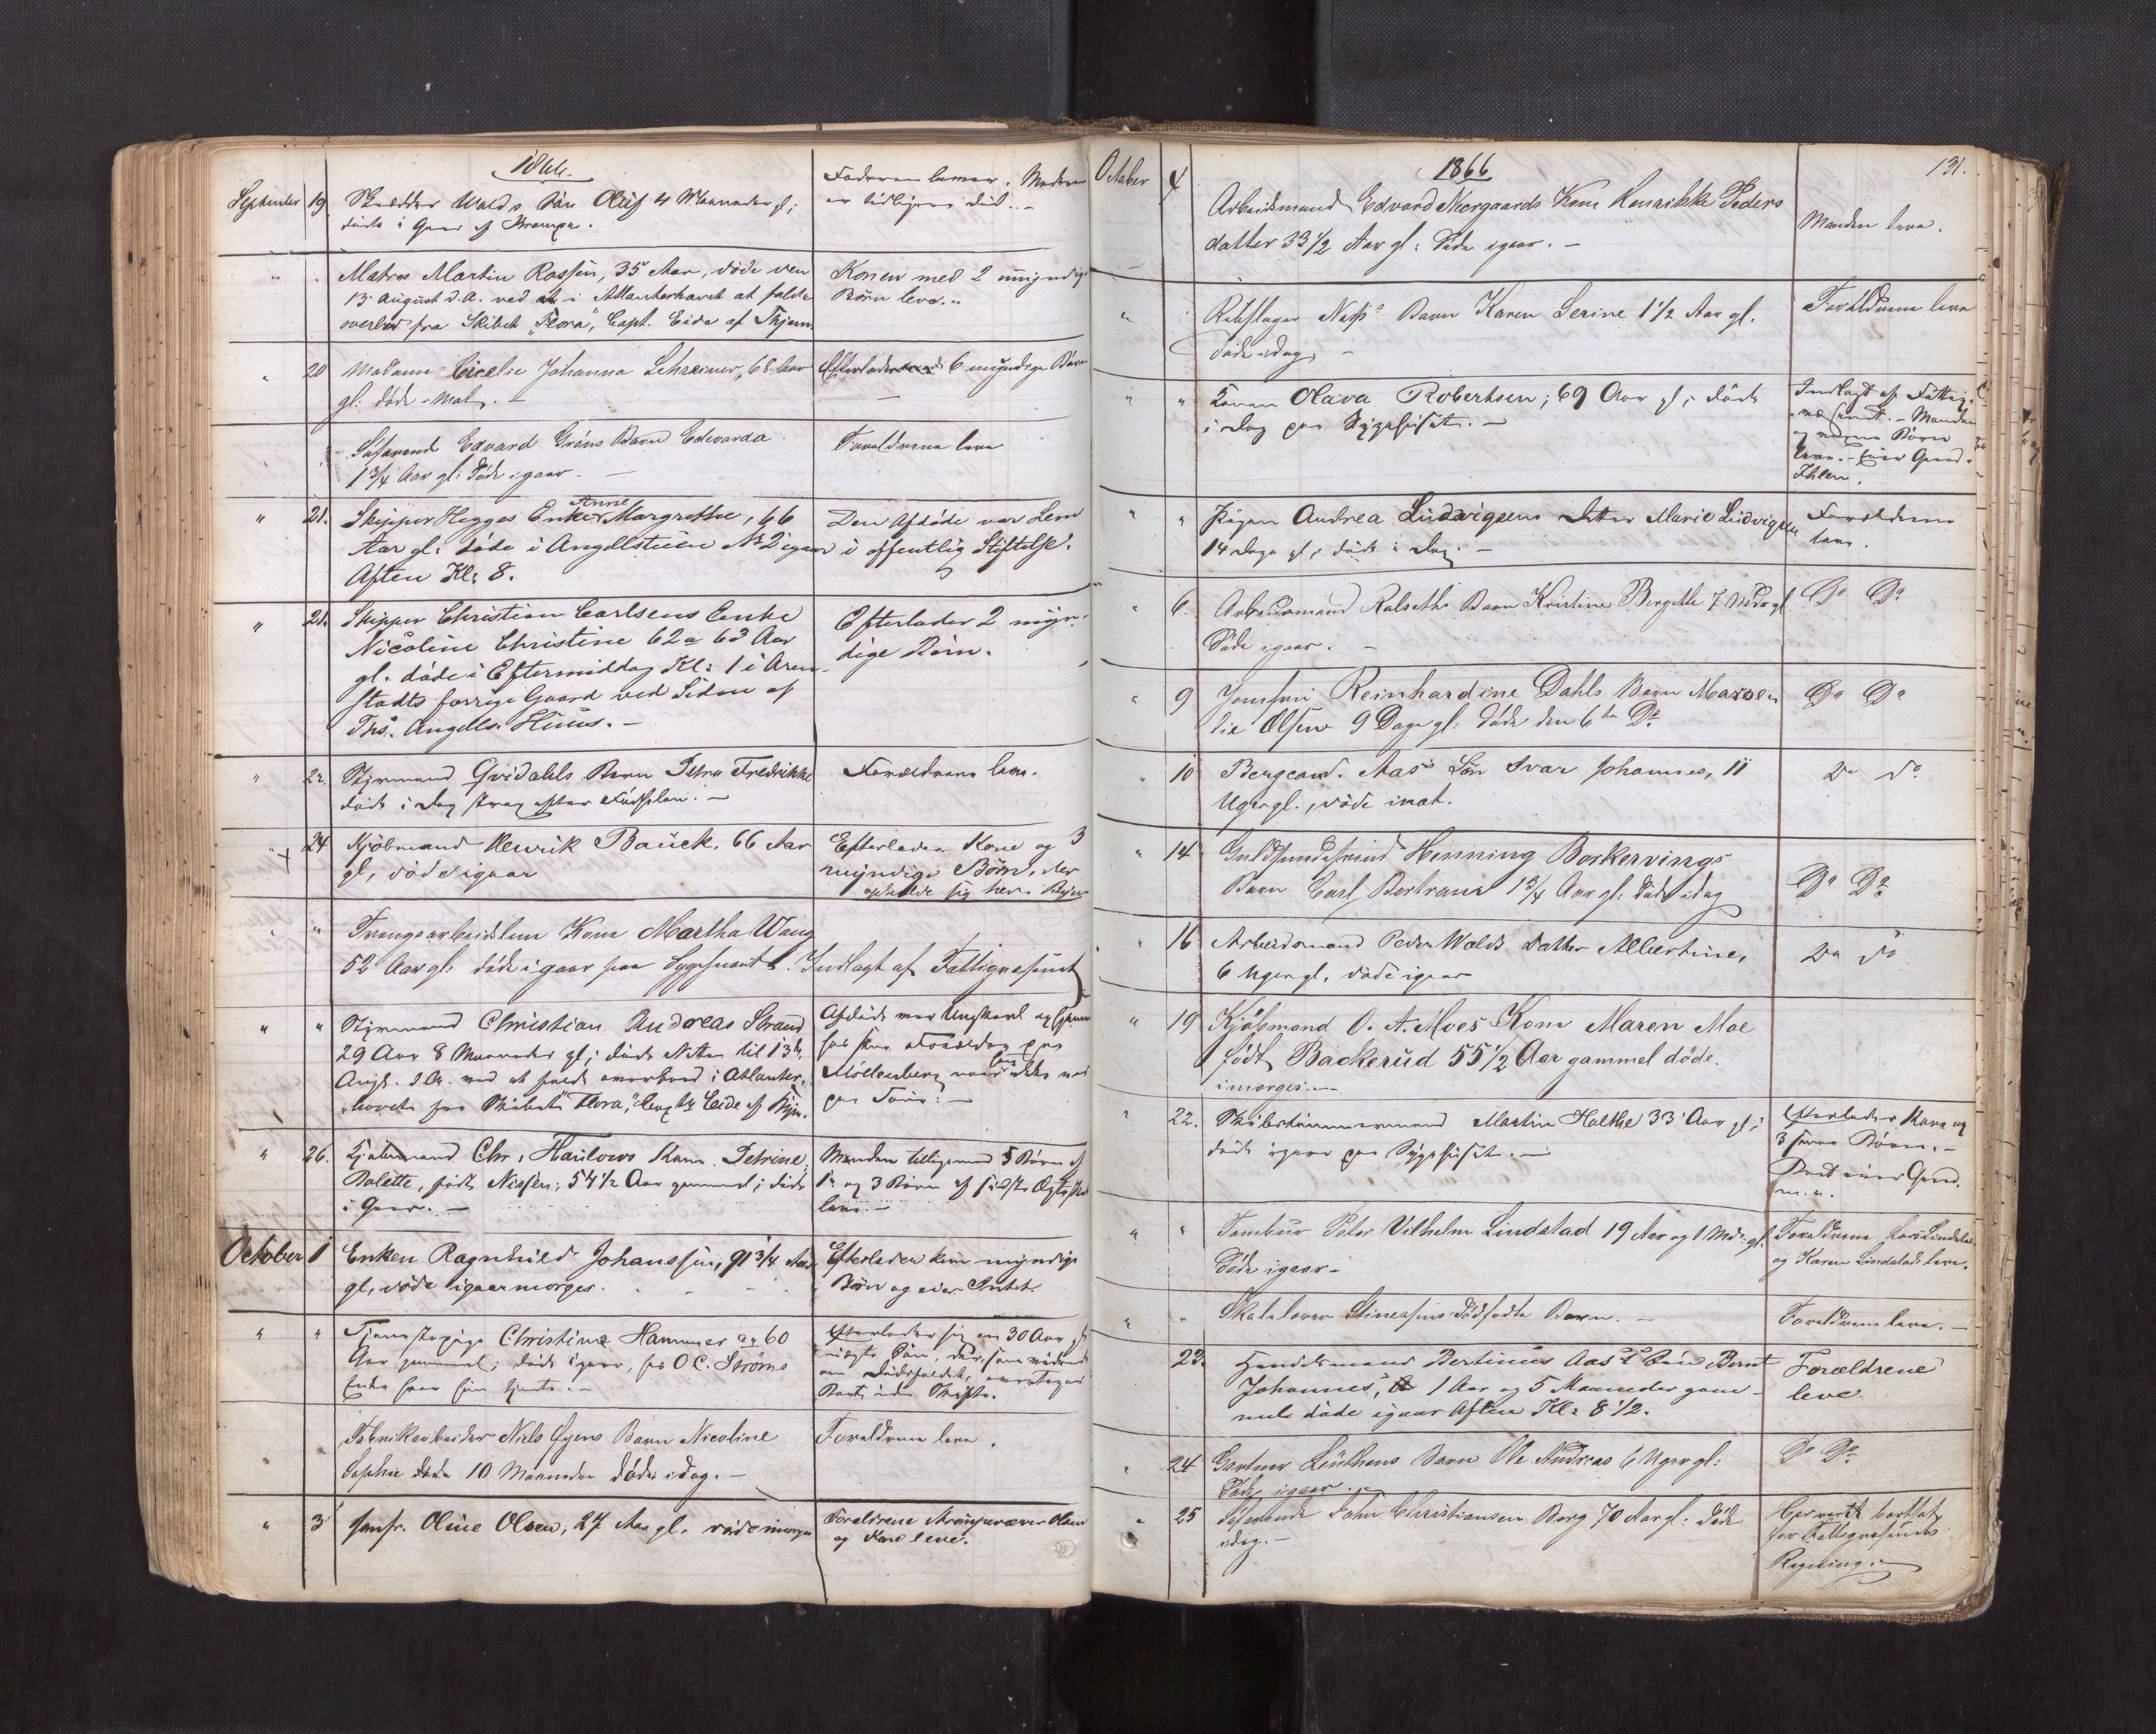 1866.
September 19. Skrædder Walds Søn Oluf 4 Maaneder gl;
døde i Gaar af Krampe.
Faderen lever. Moderen
er tidligere død. -
" Matros Martin Rossen, 35 Aar, døde den
13 August d.A. ved at i Atlanterhavet at falde
overbord fra Skibet "Flora", Capt. Eide af Thjem
Konen med 2 umyndige
Børn leve.
" 20 Madame Cicelie Johanna Schreiner, 68 Aar
gl: døde i Nat. -
Efterlader 6 myndige Børn
" Søfarende Edvard Gröns Barn Edevarda
1 3/4 Aar gl: Døde igaar -
Forældrene leve
" 21. Skipper Hegges Enke Anne Margrethe, 66
Aar gl: døde i Angellstuen No 2 igaar
Aften Kl: 8.
Den Afdøde var Lem
i offentlig Stiftelse.
" 21. Skipper Christian Carlsens Enke
Nicoline Christine 62 a 63 Aar
gl. døde i Eftermiddag Kl: 1 i Aren-
stadts forrige Gaard ved Siden af
Ths. Angells Huus. -
Efterlader 2 myn-
dige Børn.
" 22. Styrmand Qvidahls Barn Petra Fredrikke
døde i Dag strax efter Fødselen. -
Forældrene leve.
" 24 Kjøbmand Henrik Bauck, 66 Aar
gl, døde igaar
Efterlader Kone og 3
myndige Børn, der
opholde sig her i Byen
" " Tvangsarbeidslem Kone Martha Wang
52 Aar gl: døde igaar paa Sygehuset. Indlagt af Fattigvæsenet
" " Styrmand Christian Andreas Strand
29 Aar 8 Maaneder gl; døde Natten til 13de
Augst. d.A. ved at falde overbord i Atlanter-
havet fra Skibet "Flora", Capt. Eide af Thjem.
Afdøde var Ungkarl og hjemme
hos sine Forældre paa
Møllenberg naar han ikke var
paa Søen. -
" 26. Kjøbmand Chr. Haulows Kone Petrine
Bolette, født Nissen, 54 1/2 Aar gammel; døde
i Gaar. -
Manden tilligemed 5 Børn af
1ste og 3 Børn af sidste Ægteskab
leve. -
October 1 Enken Ragnhild Johanssen, 91 3/4 Aar
gl, døde igaarmorges.
Efterlader kun myndige
Børn og eier Intet.
" " Tjenestepige Christine Hammer ca 60
Aar gammel; døde igaar, hos O C. Strøms
Enke hvor hun tjente. -
Efterlader sig en 30 Aar gl
uægte Søn, der, som
om Dødsfaldet,
Boet uden Skifte.
" " Fabrikarbeider Niels Øyens Barn Nicoline
Sophie 10 Maaneder døde idag. -
Forældrene leve.
" 3 Jomfr. Oline Olsen, 27 Aar gl. døde imorges
Forældrene Strømpevæver Olsen
og Kone leve.
1866
131.
October 4 Arbeidsmand Edvard Neergaards Kone Henrikke Peders
datter 33 1/2 Aar gl: Døde igaar. -
Manden leve.
" Rebslager Næss's Barn Karen Serine 1 1/2 Aar gl.
Døde idag. -
Forældrene leve
" " Konen Olava Robertsen; 69 Aar gl; døde
i Dag paa Sygehuset. -
Indlagt af Fattig-
væsenet. - Manden
og Børn
leve. - Eier Gaard.
Ihlen.
" " Pigen Andrea Ludvigsens Datter Marie Ludvigsen
14 Dage gl; døde i Dag. -
Forældrene
leve.
" 6. Arbeidsmand Kalseths Barn Kristine Bergitte 7 Mdr gl
Døde igaar. -
Do Do
" 9 Jomfru Reinhardine Dahls Barn Maren
lie Olsen 9 Dage gl: døde den 6te Do
Do Do
" 10 Bergcand. Aas's Søn Ivar Johannes, 11
Uger gl., døde inat.
Do Do
" 14 Guldsmedsvend Henning Boskervings
Barn Carl Bertram 1 3/4 Aar gl: døde idag
Do Do
" 16 Arbeidsmand Peder Wolds Datter Albertine,
6 Uger gl, døde igaar
Do Do
" 19 Kjøbmand O. A. Moes Kone Maren Moe
født Backerud 55 1/2 Aar gammel døde
imorges. -
" 22. Skibstømmermand Martin Holthe 33 Aar gl;
døde igaar paa Sygehuset. -
Efterlader Kone og
3 smaa Børn. -
Boet eier Gaard
m. v.
" " Tambur Peter Vilhelm Lindstad 19 Aar og 1 Mdr. gl.
Døde igaar -
Forældrene Lars Lindstad
og Karen Lindstad leve.
" " Skolelærer Stinesens Dødfødte Barn. -
Forældrene leve. -
23. Handelsmand Bertinus Aas's Søn Bernt
Johannes, 1 Aar og 5 Maaneder gam-
mel døde igaar Aften Kl: 8 1/2.
Forældrene
leve
" 24 Gartner Lüthens Barn Ole Andreas 6 Uger gl:
Døde igaar.
Do Do
" 25 Søfarende John Christiansen Borg 70 Aar gl: døde
idag. -
Har været bortsat
for Fattigvæsenets
Regning.